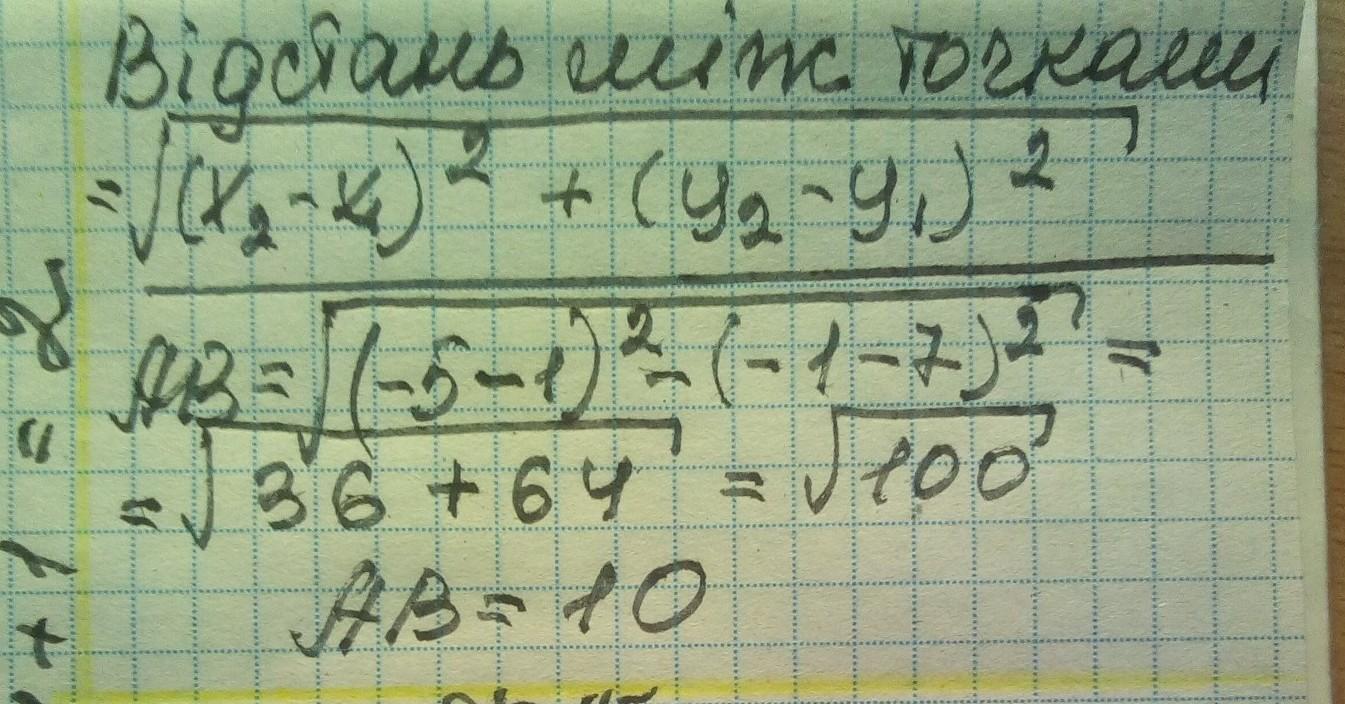 Відстань між точками
=√(x₂-x₁)² + (y₂-y₁)²
AB=√(-5-1)²-(-1-7)² =
=√36+64 =√100
AB=10